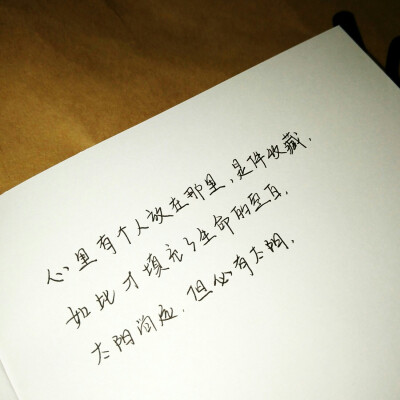 心里有个人放在那里，是件收藏，
如此才填充了生命的空白，
太阳尚远，但必有太阳，